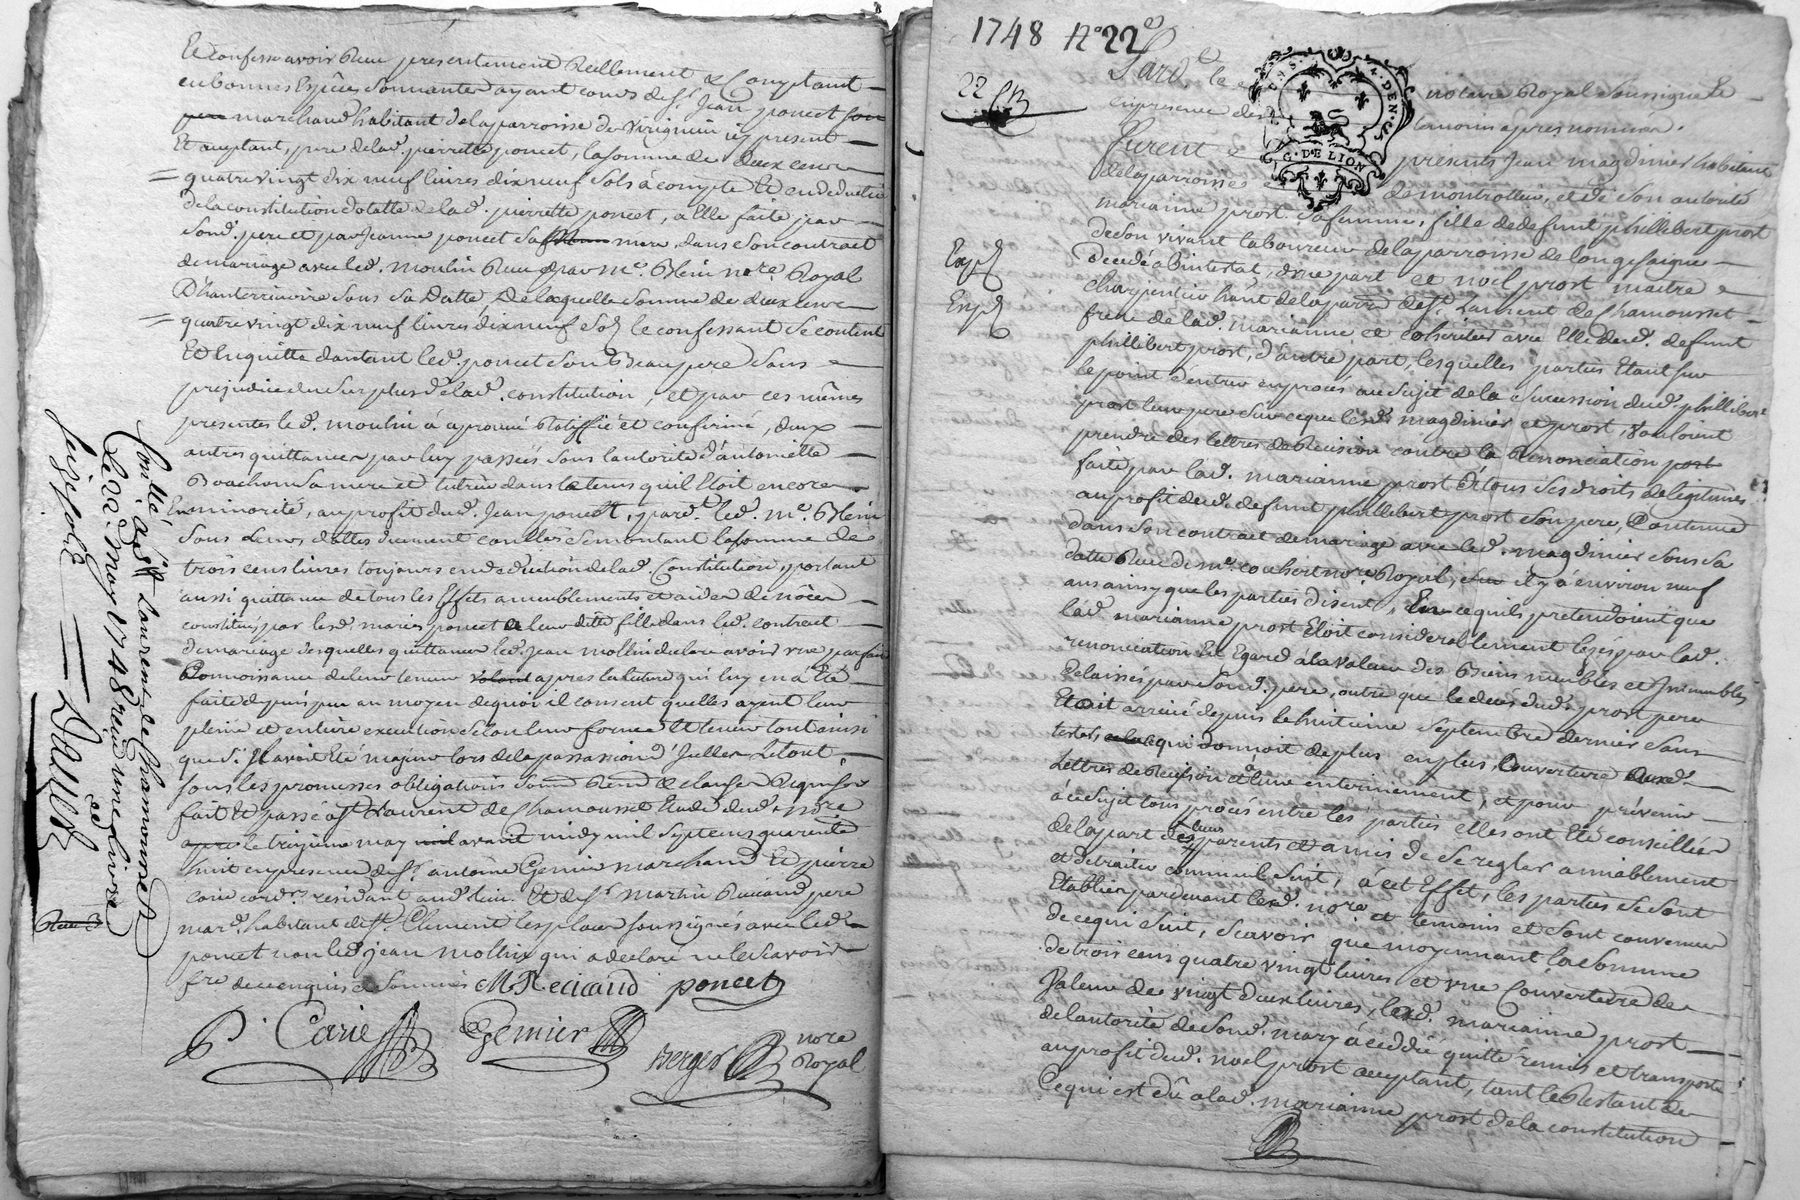 Et confesse avoir Reçu presentement Reellement & Comptant
en bonnes Espèces Sonnantes ayant cours de Sr. Jean poncet
marchand habitant de la parroisse de Virigneu icy present
Et aceptant, pere de lad. pierrette poncet, la somme de deux cens
quatre vingt dix neuf livres dix neuf sols à compte Et en deduction
de la constitution dotalle de lad. pierrette poncet, a Elle faite par
Sond. pere et par Jeanne poncet sa mere, dans son contract
de mariage avec led. moulin Reçu par me. Blein nore. Royal
D'hauterrivoire sous sa Datte, De laquelle somme de deux cens
quatre vingt dix neuf livres dix neuf sols le confessant se contente
Et En quitte d'autant led. poncet son Beaupere sans
prejudice du surplus de lad. constitution, et par ces mêmes
presentes led. moulin à aprouvé Ratiffié et confirmé, deux
autres quittances par luy passées sous l'autorité d'antoinette
sa mere et tutrice dans le tems qu'il Etoit encore
En minorité, au profit dud. Jean poncet, pard.t led. me. Blein
sous leurs dattes montant la somme de
trois cens livres toujours en deduction de lad. Constitution, portant
aussi quittance de tous les Effets ameublements et aides de nôces
constitué par lesd. mariés poncet a leur ditte fille dans led. contract
de mariage desquelles quittances led. Jean mollin declare avoir une parfaite
Connoissance de leur teneur apres la lecture qui luy en à Eté
faite depuis peu au moyen de quoi il consent quelles ayent leur
pleine et entiere execution selon leur forme Et teneur tout ainsi
que s'Il avoit Eté majeur lors de la passation d'Icelles Le tout
sous les promesses obligations soum Renon & clauses Requises
fait Et passé a St Laurent de Chamousset Etude dud. nore
le treizieme may avant midy mil septcens quarente
huit en presence de Sr. antoine Gemier marchand Et pierre
carie cord.er residant aud. lieu. Et de Sr. martin pere
mard. habitant de St. Clement les places soussignés avec led.
poncet non led. Jean mollin qui a declaré ne le scavoir
fre de ce enquis & sommés M Recicaud poncet
P. Carie Gemier
Berger nore
Royal
Conllé, à St Laurent de Chamousset
Le 22 may 1748 reçu une livre
seize sols Dauest
1748 No 22
22
Pard.t le notaire Royal soussigné Et
en presence des temoins apres nommés.
Furent presents Jean magdinier habitant
de la parroisse de montrottier, et de son autorité
marianne prost sa femme, fille de defunt phillibert prost
de son vivant laboureur de la parroisse de longesaigne
Decedé abintestat, d'une part et noel prost maitre
charpentier hant de la parre de St. Laurent de Chamousset
frere de lad. marianne et coheritier avec Elle dud. defunt
phillibert prost, d'autre part, lesquelles parties Etant sur
le point d'entrer en procés au sujet de la sucession dud. phillibert
prost leur pere sur ce que lesd. magdinier et prost, vouloint
prendre des lettres de Recision contre la Renonciation
faite par lad. marianne prost à tous ses droits de legitimes
au profit dud. defunt phillibert prost son pere, Contenue
dans son contract de mariage avec led. magdinier sous sa
datte Reçu de me. couhert nore Royal, il y à environ neuf
ans ainsy que les parties disent, En ce qu'ils pretendoient que
lad. marianne prost Etoit considerablement lezés par lad.
renonciation Eu Egard à la valeur des Biens meubles et Immeubles
delaissés par sond. pere, outre que le decés dud. prost pere
Etoit arrivé depuis le huitieme Septembre dernier sans
tester qui donnoit de plus en plus, Couverture auxd.
Lettres de Recision Et leur enterinement, et pour prévenir
à ce sujet tous procés entre les parties elles ont Eté conseillées
de la part de leurs parents et amis de se regler amiablement
et de traiter comme le suit, à cet Effet, les parties se sont
Etablies par devant led. nore. et temoins et sont convenues
de ce qui suit, scavoir que moyennant la somme
de trois cens quatre vingt livres et une Couverte de
Valeur de vingt deux livres, lad. marianne prost
de l'autorité de sond. mary à ceddé quitté remis et transporté
au profit dud. noel prost aceptant, tant le Restant de
ce qui est dû a lad. marianne prost de la constitution
G. DE LION